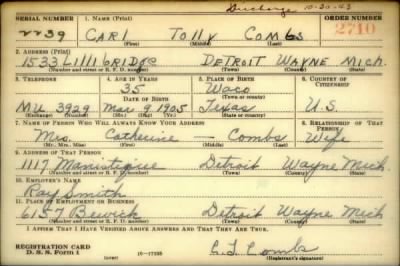 Discharge 10-20-43
SERIAL NUMBER 1. NAME (Print) ORDER NUMBER
2239 CARL TOLLY COMBS 2710
(First) (Middle) (Last)
2. ADDRESS (Print)
1533 LILLIBRIDGE DETROIT WAYNE MICH.
(Number and street or R. F. D. number) (Town) (County) (State)
3. TELEPHONE 4. AGE IN YEARS 5. PLACE OF BIRTH 6. COUNTRY OF CITIZENSHIP
35 Waco
DATE OF BIRTH (Town or county)
MU 3929 Mar. 9 1905 Texas U.S.
(Exchange) (Number) (Mo.) (Day) (Yr.) (State or country)
7. NAME OF PERSON WHO WILL ALWAYS KNOW YOUR ADDRESS 8. RELATIONSHIP OF THAT PERSON
Mrs. Catherine — Combs Wife
(Mr., Mrs., Miss) (First) (Middle) (Last)
9. ADDRESS OF THAT PERSON
1117 Manistique Detroit Wayne Mich.
(Number and street or R. F. D. number) (Town) (County) (State)
10. EMPLOYER'S NAME
Ray Smith
11. PLACE OF EMPLOYMENT OR BUSINESS
6157 Bewick Detroit Wayne Mich
(Number and street or R. F. D. number) (Town) (County) (State)
I AFFIRM THAT I HAVE VERIFIED ABOVE ANSWERS AND THAT THEY ARE TRUE.
REGISTRATION CARD
D. S. S. Form 1 (over) 16-17105 C. T. Combs
(Registrant's signature)